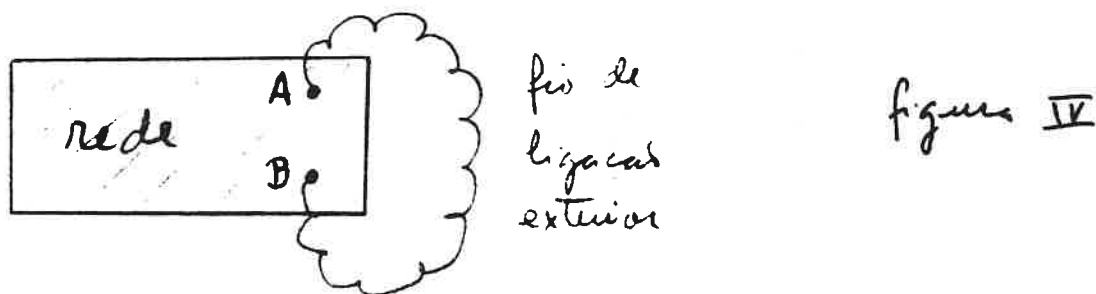 A
rede
B
fio de
ligacao
exterior
figura IV